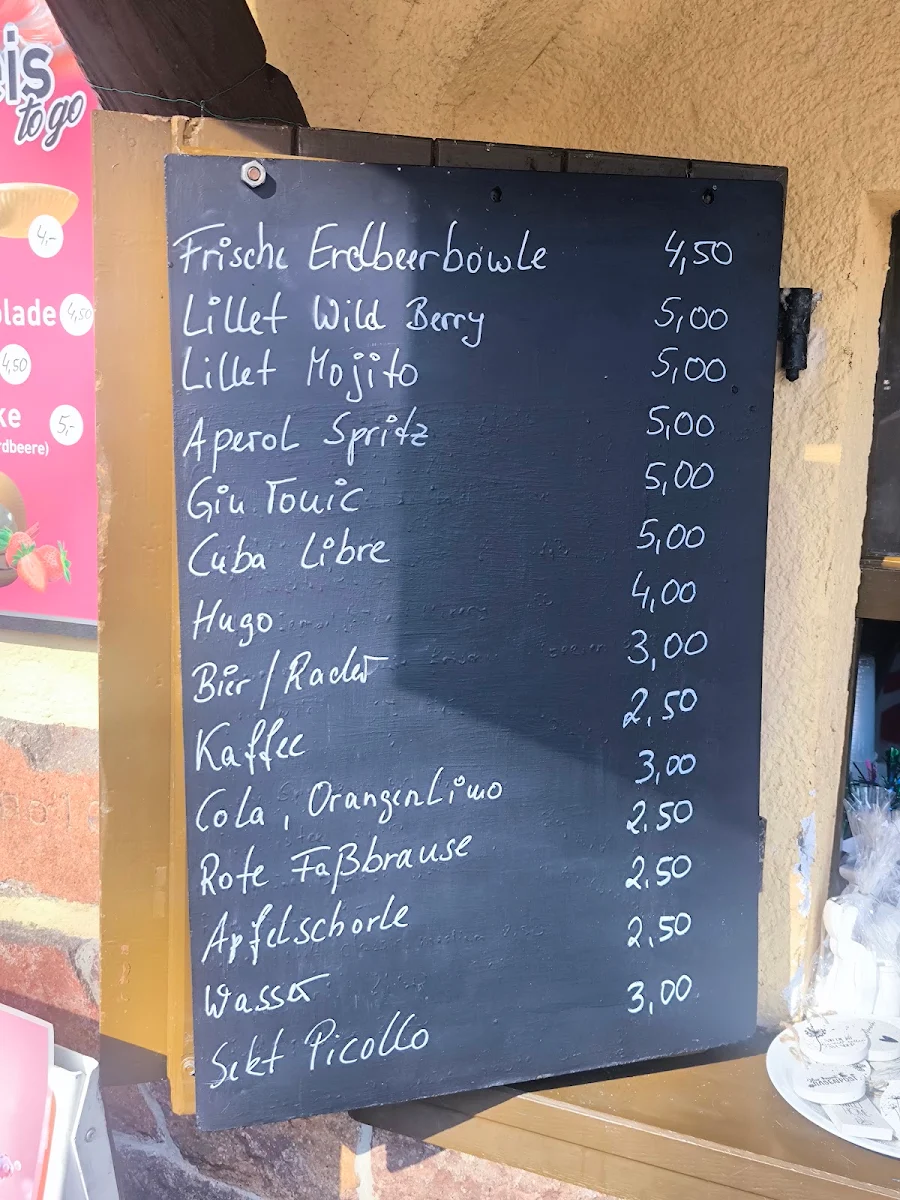 eis
to go
4,-
olade 4,50
4,50
ke 5,-
rdbeere)
Frische Erdbeerbowle 4,50
Lillet Wild Berry 5,00
Lillet Mojito 5,00
Aperol Spritz 5,00
Gin Tonic 5,00
Cuba Libre 5,00
Hugo 4,00
Bier/Radler 3,00
Kaffee 2,50
Cola, Orangenlimo 3,00
Rote Faßbrause 2,50
Apfelschorle 2,50
Wasser 2,50
Sekt Picollo 3,00